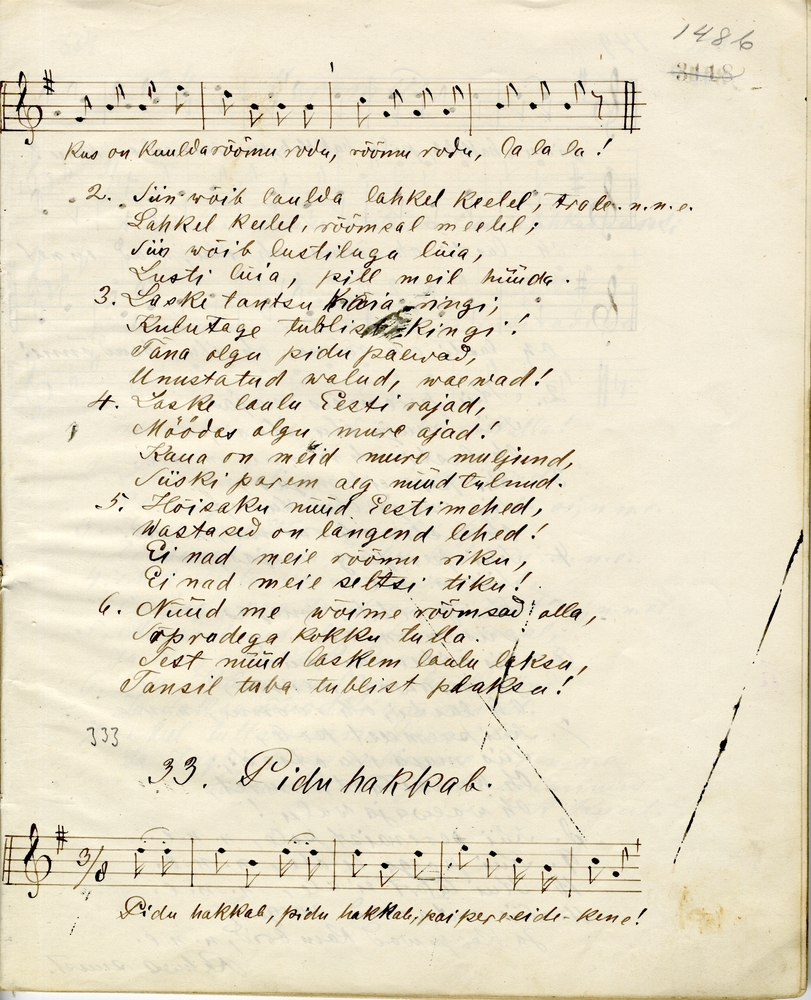 1486
3118
Kus on kuulda rõõmu rodu, rõõmu rodu, la la la!
2. Siin wõib laulda lahkel keelel, trala. n.n.e.
Lahkel keelel, rõõmsal meelel;
Siis wõib lustiluga lüia,
Lusti lüia, pill meil hüüda.
3. Laske tantsu käia ringi,
Kulutage tublist kingi!
Täna olgu pidu päewad,
Unustatud walud, waewad!
4. Laske laulu Eesti rajad,
Möödas olgu mure ajad!
Kaua on meid mure muljund,
Siiski parem aeg nüüd tulnud.
5. Hõisaku nüüd Eestimehed,
Wastased on längend lehed!
Ei nad meie rõõmu riku,
Ei nad meie seltsi tiku!
6. Nüüd me wõime rõõmsad olla,
Sõpradega kokku tulla.
Sest nüüd laskem laulu laksu,
Tansil tuba tublist plaksu!
333
33. Pidu hakkab.
3/8
Pidu hakkab, pidu hakkab, pai pere-eide-kene!